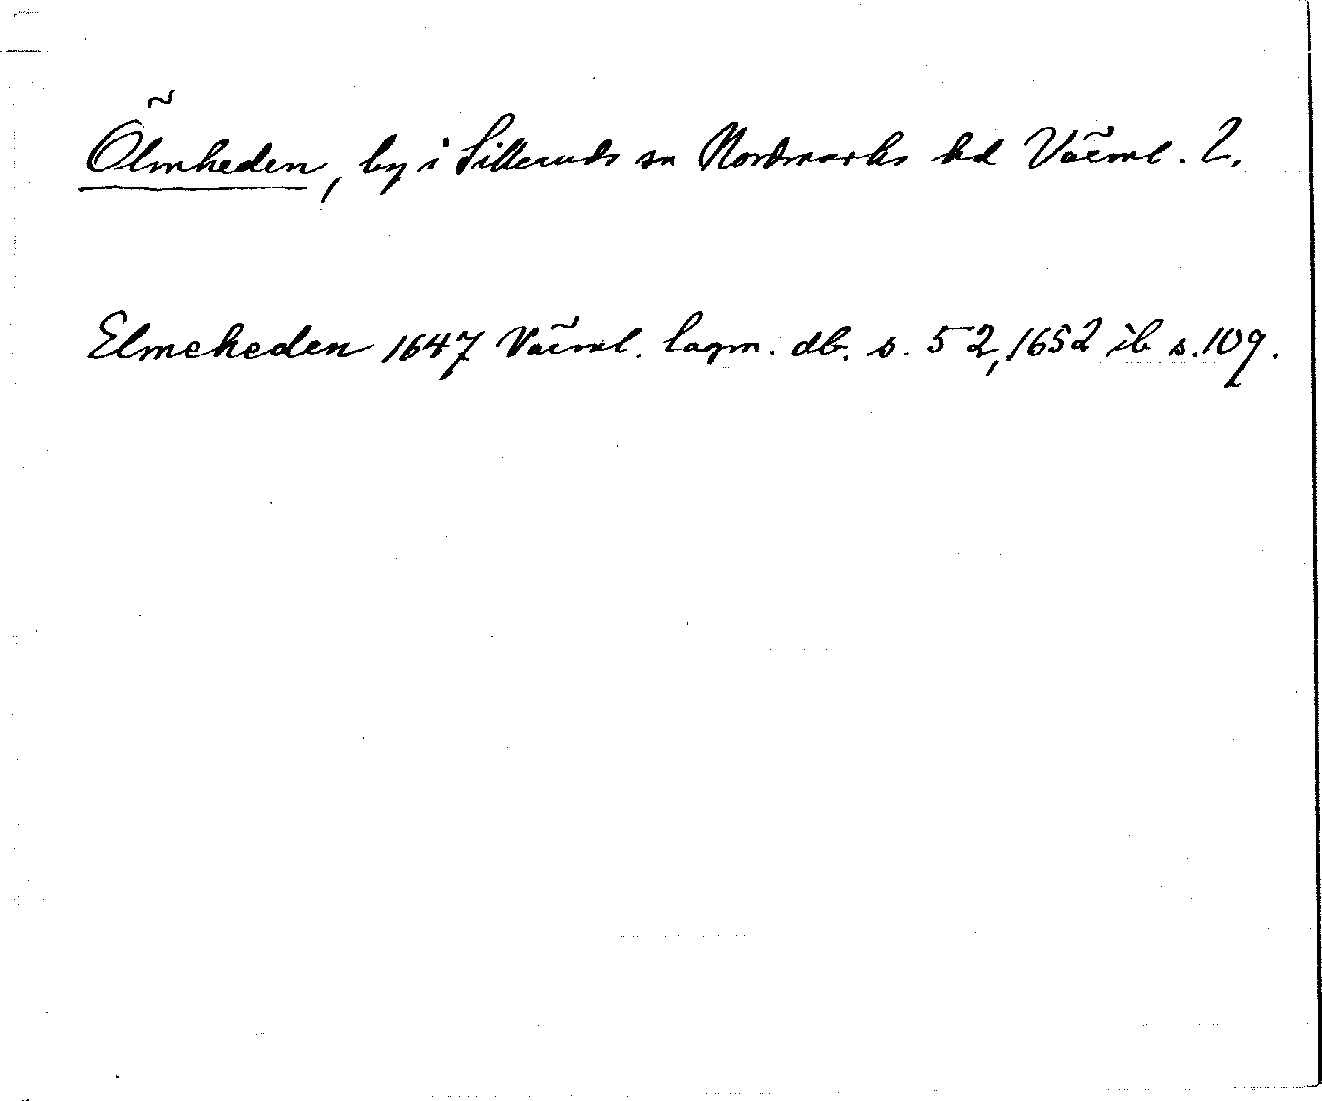 Ölmheden, by i Silleruds sn Nordmarks hd Värml. l.
Elmeheden 1647 Värml. lagm. db. s. 52, 1652 ib s. 109.